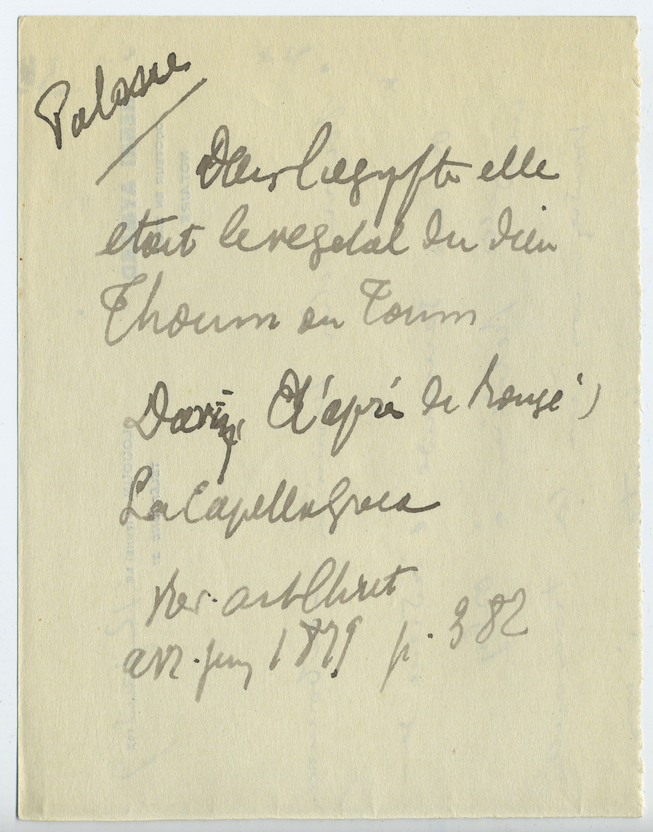 Palme
Dans l'aegypte elle
était le regdal du dieu
Thoum ou Toum
Davin (d'après de Rougé)
La Capella Greca
Rev. art Chret
avr. juin 1879 p. 382